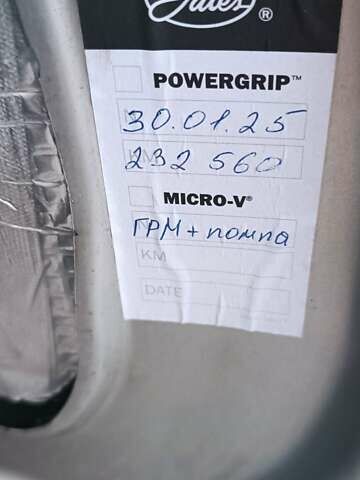 Gates®
POWERGRIP™
30.01.25
232 560
MICRO-V®
ГРМ + помпа
KM
DATE